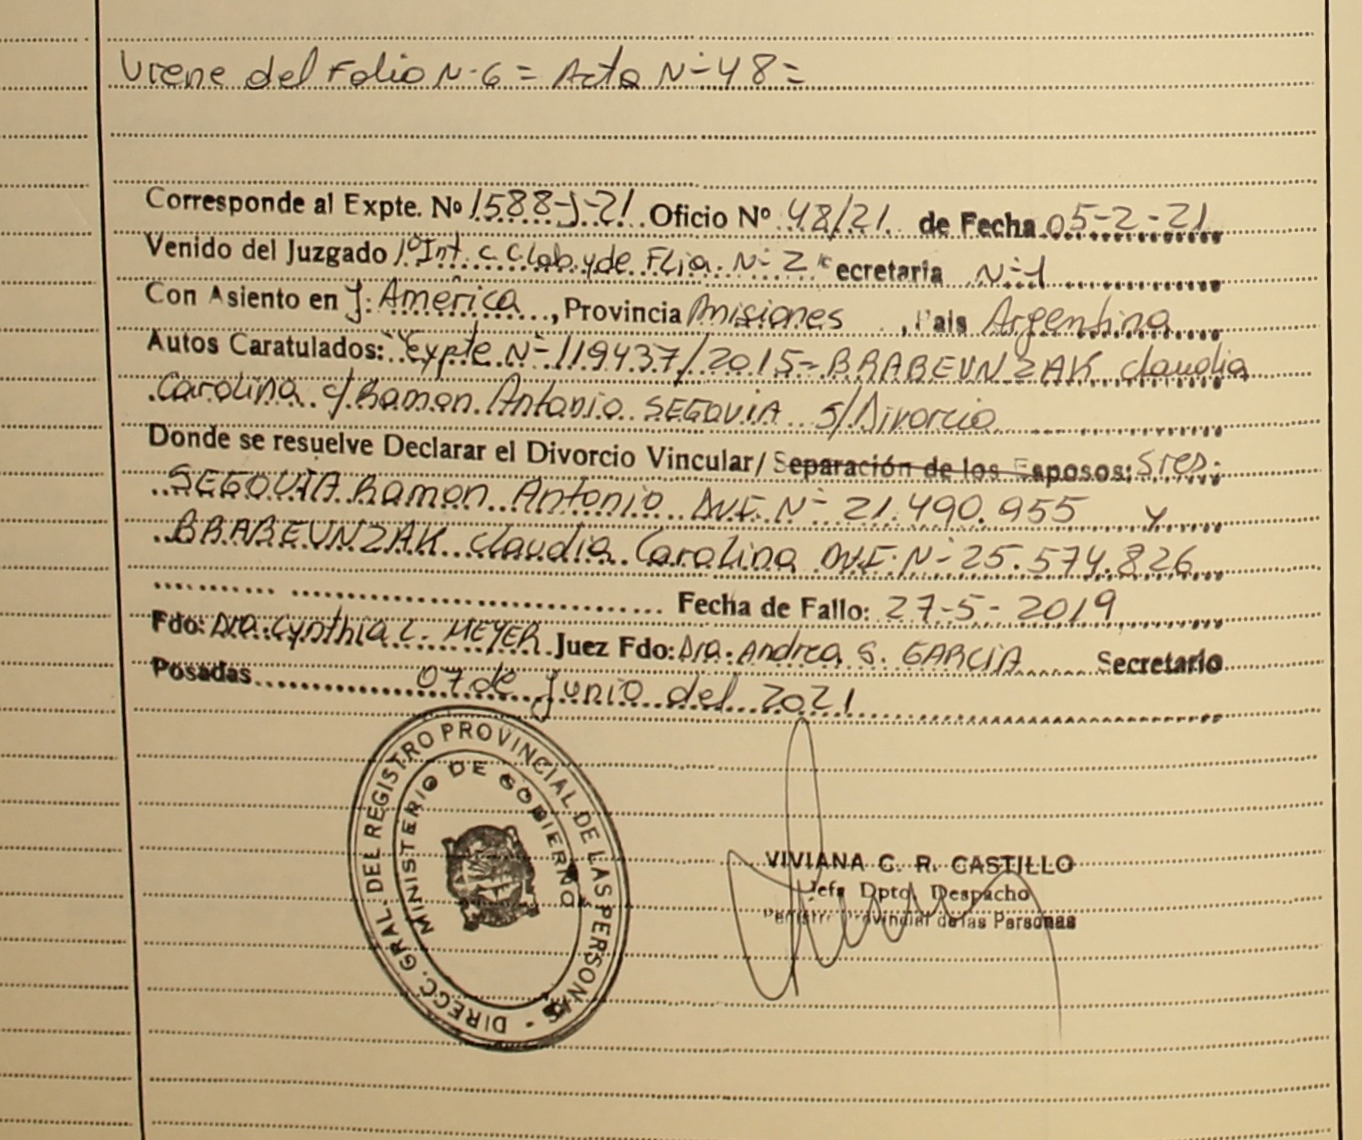 Viene del Folio N-6 = Acta N-48 =
Corresponde al Expte. Nº 1588-J-21 Oficio Nº 48/21 de Fecha 05-2-21
Venido del Juzgado 1º Int. C C lab. y de Flia. N-2 ecretaria N-1
Con Asiento en J. América, Provincia Misiones, Pais Argentina
Autos Caratulados: "Expte N-119437/2015- BRABEUNZAK Claudia
Carolina c/ Ramon Antonio SEGOVIA s/Divorcio
Donde se resuelve Declarar el Divorcio Vincular/ Separación de los Esposos: Sres:
SEGOVIA Ramon Antonio D.N.I. N- 21.490.955 y
BRABEUNZAK Claudia Carolina D.N.I. N-25.574.826
Fecha de Fallo: 27-5-2019
Fdo: Dra. Cynthia L. MEYER Juez Fdo: Dra. Andrea S. GARCIA Secretario
Posadas 07 de Junio del 2021
DIRECC. GRAL. DEL REGISTRO PROVINCIAL DE LAS PERSONAS -
MINISTERIO DE GOBIERNO
VIVIANA C. R. CASTILLO
Jefa Dpto. Despacho
Registro Provincial de las Personas